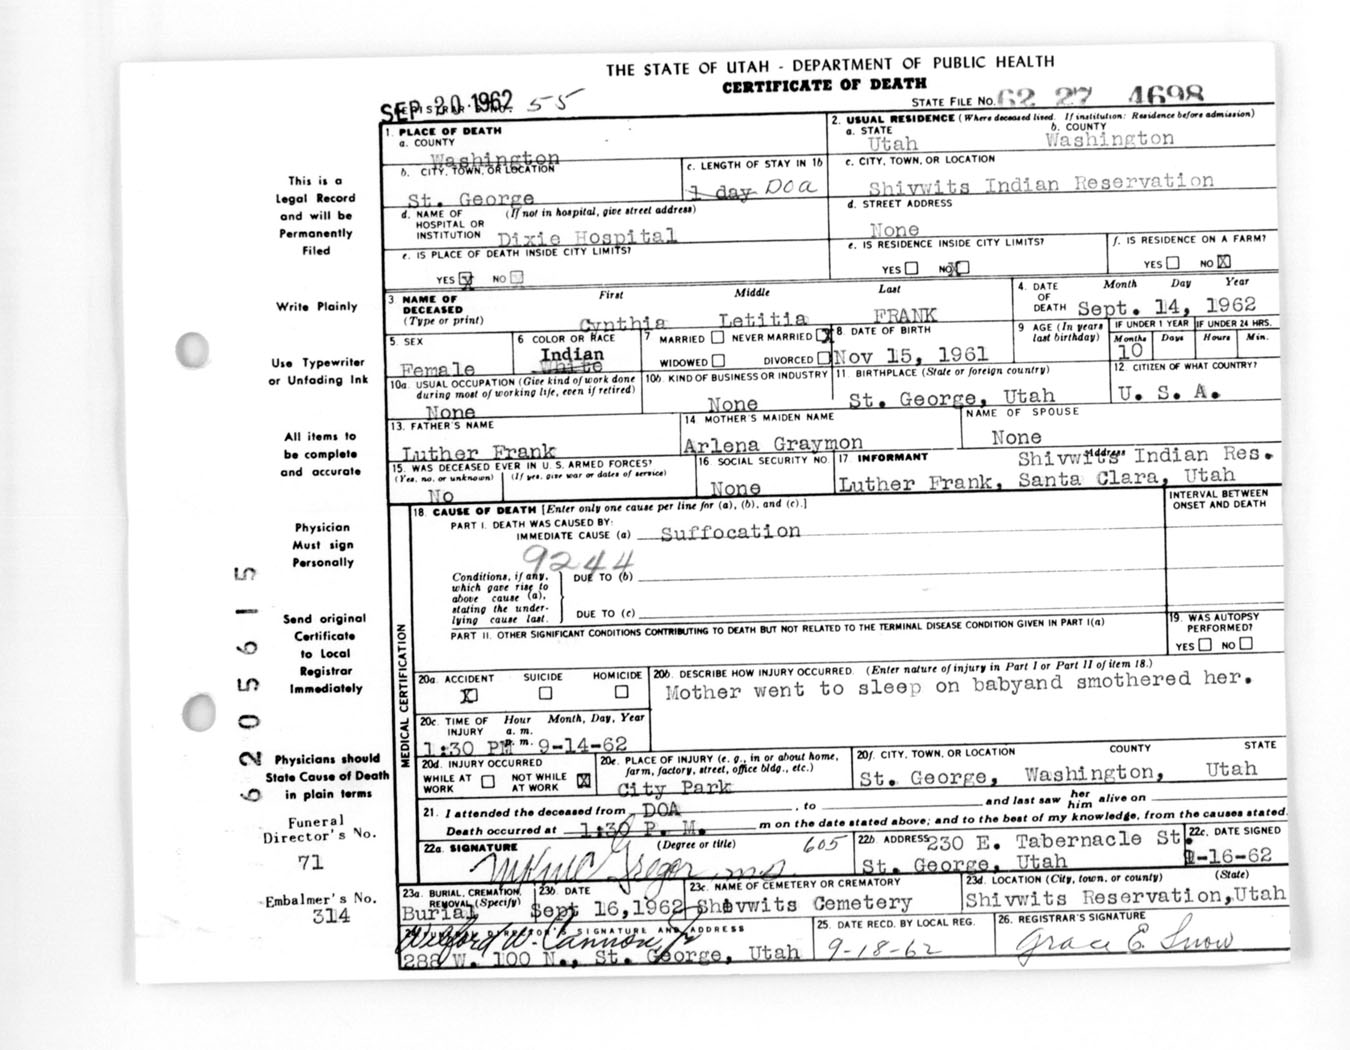 THE STATE OF UTAH - DEPARTMENT OF PUBLIC HEALTH
CERTIFICATE OF DEATH
SEP 20 1962 55
STATE FILE NO. 62 27 4698
1. PLACE OF DEATH
a. COUNTY
Washington
2. USUAL RESIDENCE (Where deceased lived. If institution: Residence before admission)
a. STATE b. COUNTY
Utah Washington
b. CITY, TOWN, OR LOCATION
St. George
c. LENGTH OF STAY IN 1b
1 day DOA
c. CITY, TOWN, OR LOCATION
Shivwits Indian Reservation
d. NAME OF HOSPITAL OR INSTITUTION (If not in hospital, give street address)
Dixie Hospital
d. STREET ADDRESS
None
e. IS PLACE OF DEATH INSIDE CITY LIMITS?
YES X NO
e. IS RESIDENCE INSIDE CITY LIMITS?
YES NO X
f. IS RESIDENCE ON A FARM?
YES NO X
3 NAME OF DECEASED (Type or print) First Middle Last
Cynthia Letitia FRANK
4. DATE OF DEATH Month Day Year
Sept. 14, 1962
5. SEX
Female
6 COLOR OR RACE
Indian
White
7 MARRIED NEVER MARRIED X
WIDOWED DIVORCED
8. DATE OF BIRTH
Nov 15, 1961
9 AGE (In years last birthday)
IF UNDER 1 YEAR IF UNDER 24 HRS.
Months Days Hours Min.
10
10a. USUAL OCCUPATION (Give kind of work done during most of working life, even if retired)
None
10b. KIND OF BUSINESS OR INDUSTRY
None
11. BIRTHPLACE (State or foreign country)
St. George, Utah
12. CITIZEN OF WHAT COUNTRY?
U. S. A.
13. FATHER'S NAME
Luther Frank
14 MOTHER'S MAIDEN NAME
Arlena Graymon
NAME OF SPOUSE
None
15. WAS DECEASED EVER IN U. S. ARMED FORCES?
(Yes, no. or unknown) (If yes, give war or dates of service)
No
16. SOCIAL SECURITY NO.
None
17. INFORMANT Address
Shivwits Indian Res.
Luther Frank, Santa Clara, Utah
MEDICAL CERTIFICATION
18. CAUSE OF DEATH [Enter only one cause per line for (a), (b), and (c).]
INTERVAL BETWEEN ONSET AND DEATH
PART I. DEATH WAS CAUSED BY:
IMMEDIATE CAUSE (a) Suffocation
9244
Conditions, if any, which gave rise to above cause (a), stating the underlying cause last.
DUE TO (b)
DUE TO (c)
PART II. OTHER SIGNIFICANT CONDITIONS CONTRIBUTING TO DEATH BUT NOT RELATED TO THE TERMINAL DISEASE CONDITION GIVEN IN PART I(a)
19. WAS AUTOPSY PERFORMED?
YES NO
20a. ACCIDENT SUICIDE HOMICIDE
X
20b. DESCRIBE HOW INJURY OCCURRED. (Enter nature of injury in Part I or Part II of item 18.)
Mother went to sleep on babyand smothered her.
20c. TIME OF INJURY Hour Month, Day, Year
a. m.
p. m.
1:30 PM 9-14-62
20d. INJURY OCCURRED
WHILE AT WORK NOT WHILE AT WORK X
20e. PLACE OF INJURY (e. g., in or about home, farm, factory, street, office bldg., etc.)
City Park
20f. CITY, TOWN, OR LOCATION COUNTY STATE
St. George, Washington, Utah
21. I attended the deceased from DOA, to and last saw her him alive on
Death occurred at 1:30 P. M. m on the date stated above; and to the best of my knowledge, from the causes stated.
22a. SIGNATURE (Degree or title) 605
McGregor M.D.
22b. ADDRESS 230 E. Tabernacle St.
St. George, Utah
22c. DATE SIGNED
9-16-62
23a. BURIAL, CREMATION, REMOVAL (Specify)
Burial
23b. DATE
Sept 16, 1962
23c. NAME OF CEMETERY OR CREMATORY
Shivwits Cemetery
23d. LOCATION (City, town, or county) (State)
Shivwits Reservation, Utah
24. FUNERAL DIRECTOR'S SIGNATURE AND ADDRESS
Wilford W. Cannon, Jr
288 W. 100 N., St. George, Utah
25. DATE RECD. BY LOCAL REG.
9-18-62
26. REGISTRAR'S SIGNATURE
Grace E. Snow
This is a
Legal Record
and will be
Permanently
Filed
Write Plainly
Use Typewriter
or Unfading Ink
All items to
be complete
and accurate
Physician
Must sign
Personally
Send original
Certificate
to Local
Registrar
Immediately
Physicians should
State Cause of Death
in plain terms
Funeral
Director's No.
71
Embalmer's No.
314
62 205615